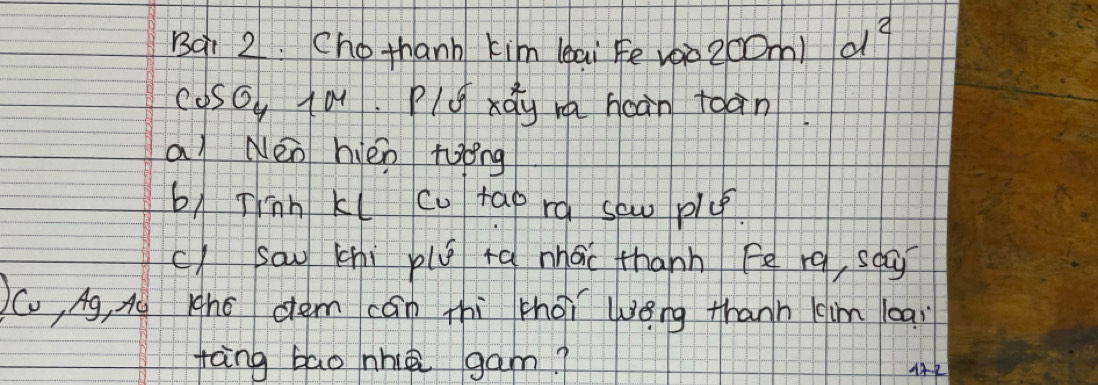 Bài 2 : Cho thanh kim loại Fe vào 200ml d²
CuSO₄ 1M . P/ứ xảy ra hoàn toàn .
a) Nên hiện tượng
b) Tính KL Cu tạo ra sau p/ứ.
c) Sau khi p/ứ ta nhấc thanh Fe ra, sấy
)Cu, Ag, Au khô đem cân thì khối lượng thanh kim loại
tăng bao nhiê gam ?